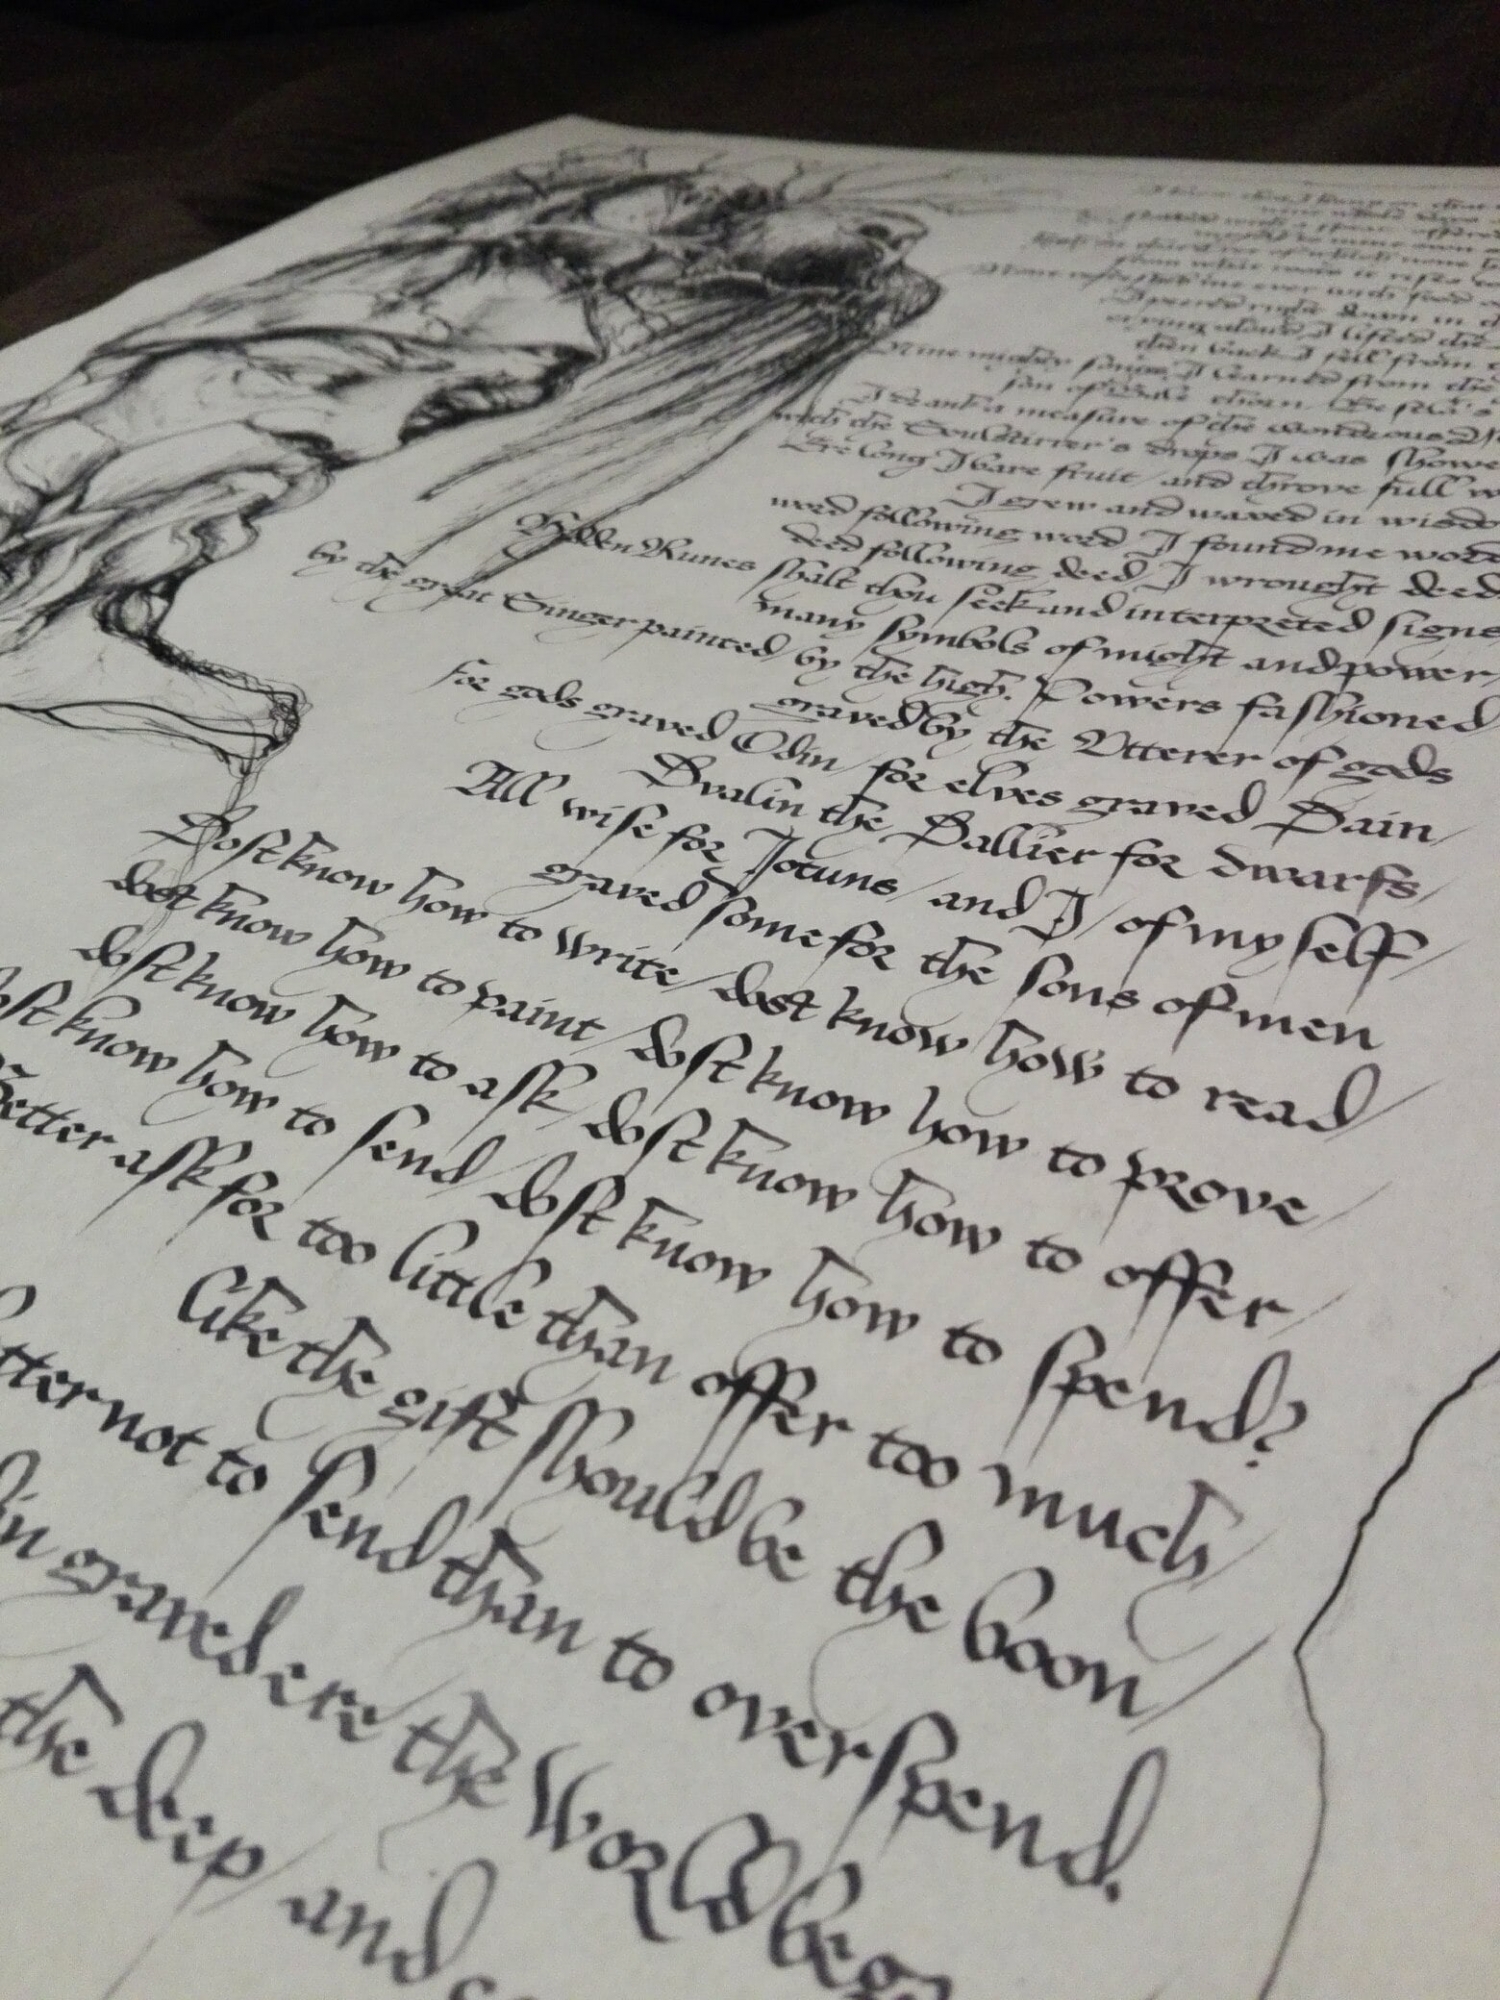 nine whole
with a spear offered
myself to mine own
of which none
from what root it
None me ever with food
I peered right down in
crying aloud I lifted the
then back I fell from
Nine mighty songs I learned from the
son of Bale thorn
I drank a measure of the wonderous
with the Soulstirrer's drops I was showe
Ere long I bare fruit / and throve full w
I grew and waxed in wisdo
word following word I found me word
deed following deed / I wrought deed
Hidden Runes shalt thou seek and interpreted signs
many symbols of might and power /
by the great Singer painted / by the high Powers fashioned
graved by the Utterer of gods
For gods graved Odin / for elves graved Dain /
Dvalin the Dallier for dwarfs /
All wise for Jotuns / and I / of my self /
graved some for the sons of men
Dost know how to write / dost know how to read /
dost know how to paint / dost know how to prove /
dost know how to ask / dost know how to offer /
ost know how to send / dost know how to spend?
Better ask for too little than offer too much /
like the gift should be the boon /
etter not to send than to overspend.
in graved ere the World bega
the deep / and